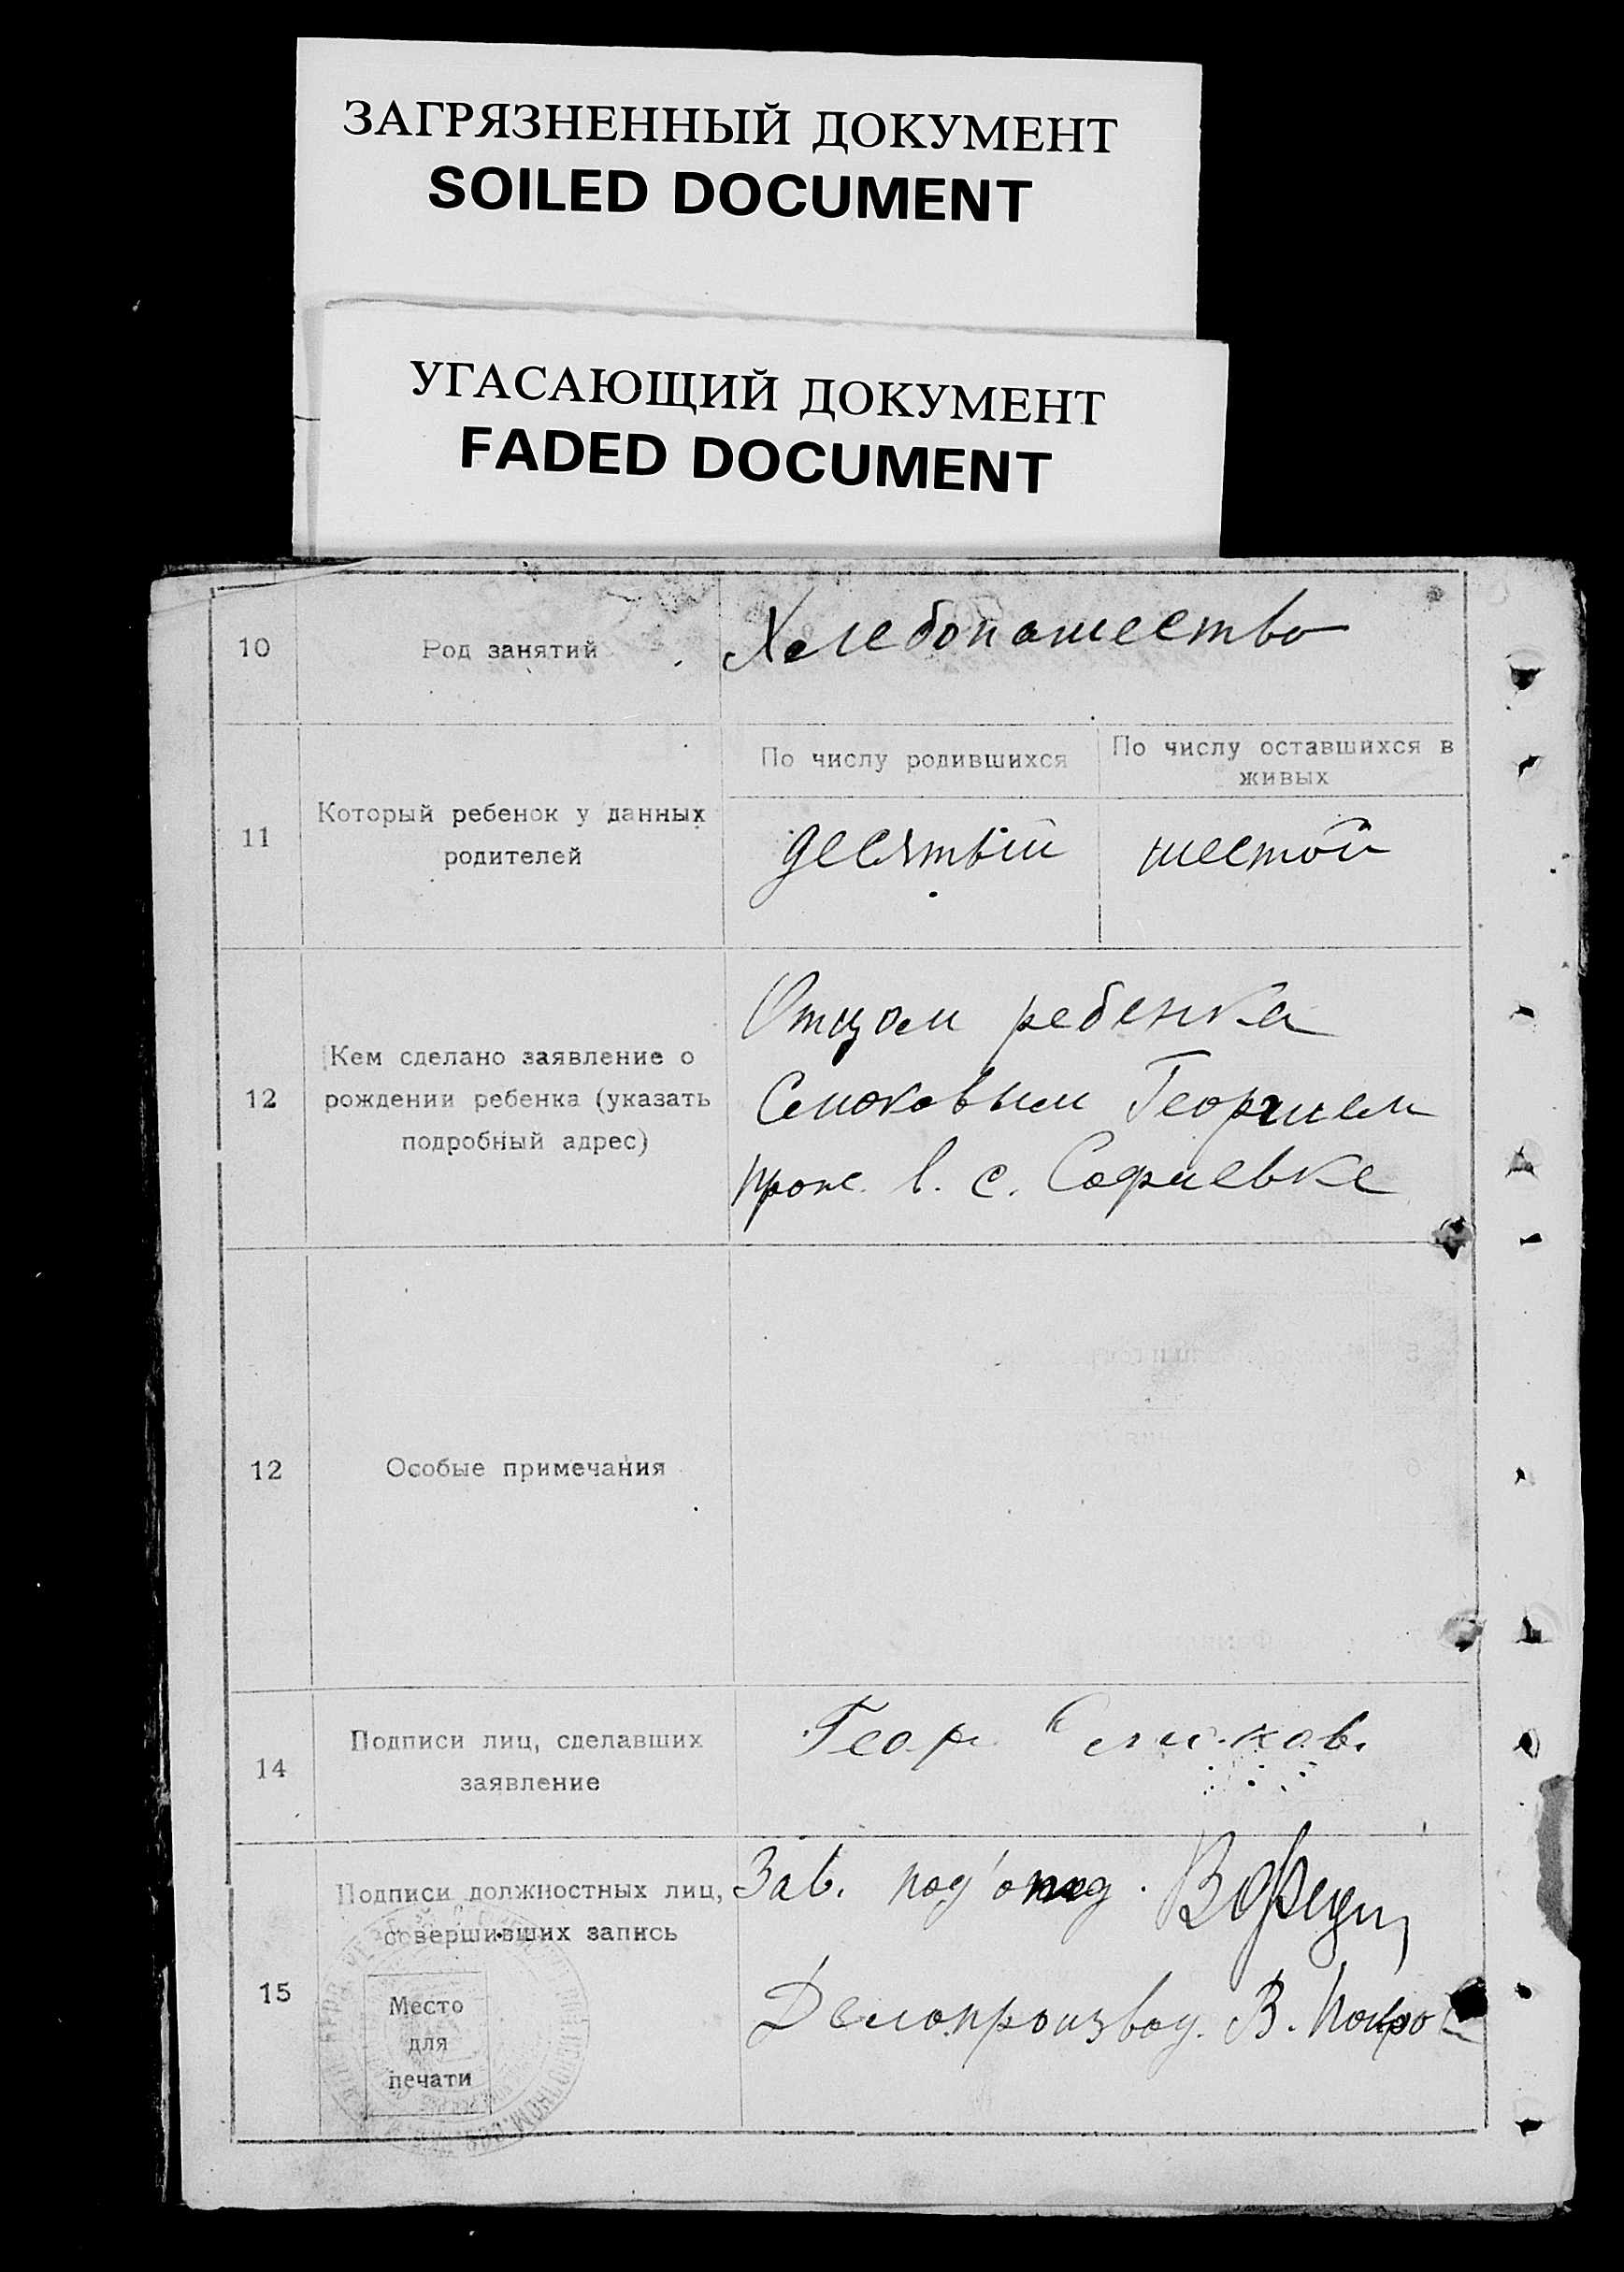 ЗАГРЯЗНЕННЫЙ ДОКУМЕНТ
SOILED DOCUMENT
УГАСАЮЩИЙ ДОКУМЕНТ
FADED DOCUMENT
10 Род занятий Хлебопашество
11 Который ребенок у данных родителей
По числу родившихся По числу оставшихся в живых
десятый шестой
12 Кем сделано заявление о
рождении ребенка (указать
подробный адрес)
Отцом ребенка
Георгием
прож. в. с. Софиевке
12 Особые примечания
14 Подписи лиц, сделавших
заявление
Геор
15 Подписи должностных лиц,
совершивших запись
Зав.
Делопроизвод. В.
Место
для
печати